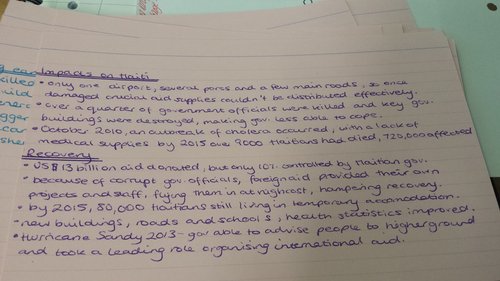 Impacts on Haiti
killed • only one airport, several ports and a few main roads, so once
damaged crucial aid supplies couldn't be distributed effectively.
• over a quarter of government officials were killed and key gov.
buildings were destroyed, making gov. less able to cope.
• October 2010, an outbreak of cholera occurred, with a lack of
medical supplies by 2015 over 9000 Haitians had died, 720,000 affected
Recovery
• US$13 billion aid donated, but only 10% controlled by Haitian gov.
• because of corrupt gov officials, foreign aid provided their own
projects and staff, flying them in at high cost, hampering recovery.
• by 2015, 80,000 Haitians still living in temporary accomodation.
• new buildings, roads and schools, health statistics improved.
• Hurricane Sandy 2013 - gov able to advise people to higher ground
and took a leading role organising international aid.